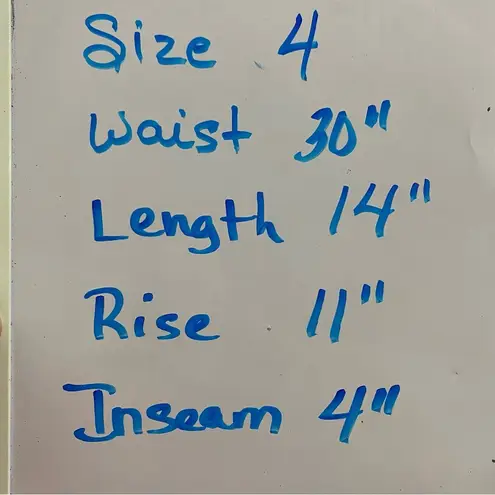 Size 4
Waist 30"
Length 14"
Rise 11"
Inseam 4"